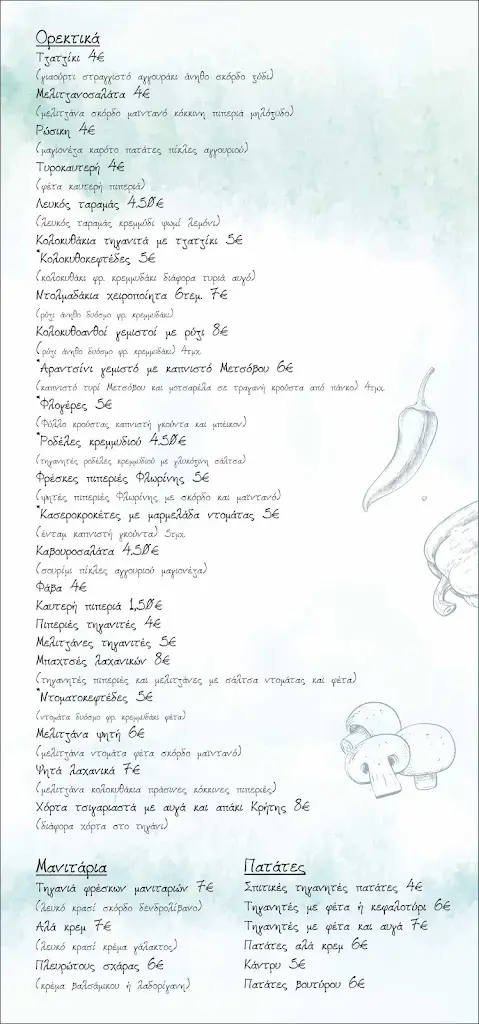 Ορεκτικά
Τζατζίκι 4€
(γιαούρτι στραγγιστό αγγουράκι άνηθο σκόρδο ξύδι)
Μελιτζανοσαλάτα 4€
(μελιτζάνα σκόρδο μαϊντανό κόκκινη πιπεριά μηλόξυδο)
Ρώσικη 4€
(μαγιονέζα καρότο πατάτες πίκλες αγγουριού)
Τυροκαυτερή 4€
(φέτα καυτερή πιπεριά)
Λευκός ταραμάς 4.50€
(λευκός ταραμάς κρεμμύδι ψωμί λεμόνι)
Κολοκυθάκια τηγανιτά με τζατζίκι 5€
*Κολοκυθοκεφτέδες 5€
(κολοκυθάκι φρ. κρεμμυδάκι διάφορα τυριά αυγό)
Ντολμαδάκια χειροποίητα 6τεμ. 7€
(ρύζι άνηθο δυόσμο φρ. κρεμμυδάκι)
Κολοκυθοανθοί γεμιστοί με ρύζι 8€
(ρύζι άνηθο δυόσμο φρ. κρεμμυδάκι) 4τμχ
*Αραντσίνι γεμιστό με καπνιστό Μετσόβου 6€
(καπνιστό τυρί Μετσόβου και μοτσαρέλα σε τραγανή κρούστα από πάνκο) 4τμχ
*Φλογέρες 5€
(Φύλλο κρούστας καπνιστή γκούντα και μπέικον)
*Ροδέλες κρεμμυδιού 4.50€
(τηγανητές ροδέλες κρεμμυδιού με γλυκόξινη σάλτσα)
Φρέσκες πιπεριές Φλωρίνης 5€
(ψητές πιπεριές Φλωρίνης με σκόρδο και μαϊντανό)
*Κασεροκροκέτες με μαρμελάδα ντομάτας 5€
(ένταμ καπνιστή γκούντα) 5τμχ
Καβουροσαλάτα 4.50€
(σουρίμι πίκλες αγγουριού μαγιονέζα)
Φάβα 4€
Καυτερή πιπεριά 1,50€
Πιπεριές τηγανιτές 4€
Μελιτζάνες τηγανιτές 5€
Μπαχτσές λαχανικών 8€
(τηγανητές πιπεριές και μελιτζάνες με σάλτσα ντομάτας και φέτα)
*Ντοματοκεφτέδες 5€
(ντομάτα δυόσμο φρ. κρεμμυδάκι φέτα)
Μελιτζάνα ψητή 6€
(μελιτζάνα ντομάτα φέτα σκόρδο μαϊντανό)
Ψητά λαχανικά 7€
(μελιτζάνα κολοκυθάκια πράσινες κόκκινες πιπεριές)
Χόρτα τσιγαριαστά με αυγά και απάκι Κρήτης 8€
(διάφορα χόρτα στο τηγάνι)
Μανιτάρια
Τηγανιά φρέσκων μανιταριών 7€
(λευκό κρασί σκόρδο δενδρολίβανο)
Αλά κρεμ 7€
(λευκό κρασί κρέμα γάλακτος)
Πλευρώτους σχάρας 6€
(κρέμα βαλσάμικου ή λαδορίγανη)
Πατάτες
Σπιτικές τηγανητές πατάτες 4€
Τηγανητές με φέτα ή κεφαλοτύρι 6€
Τηγανητές με φέτα και αυγά 7€
Πατάτες αλά κρεμ 6€
Κάντρυ 5€
Πατάτες βουτύρου 6€